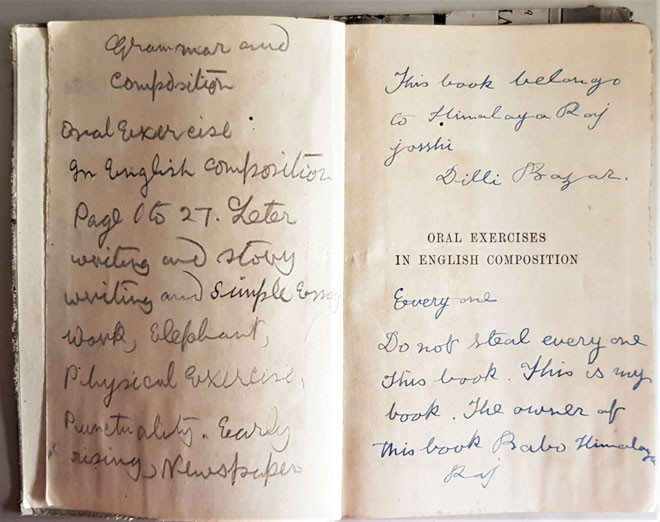 Grammar and
Composition
Oral Exercise
In English Composition
Page 1 to 27. Leter
writing and story
writing and simple Essay
Work, Elephant,
Physical Exercise,
Punctuality. Early
rising, Newspaper
This book belongo
to Himalaya Raj
josshi
Dilli Bazar.
ORAL EXERCISES
IN ENGLISH COMPOSITION
Every one
Do not steal every one
This book. This is my
book. The owner of
this book Babo Himalaya
Raj